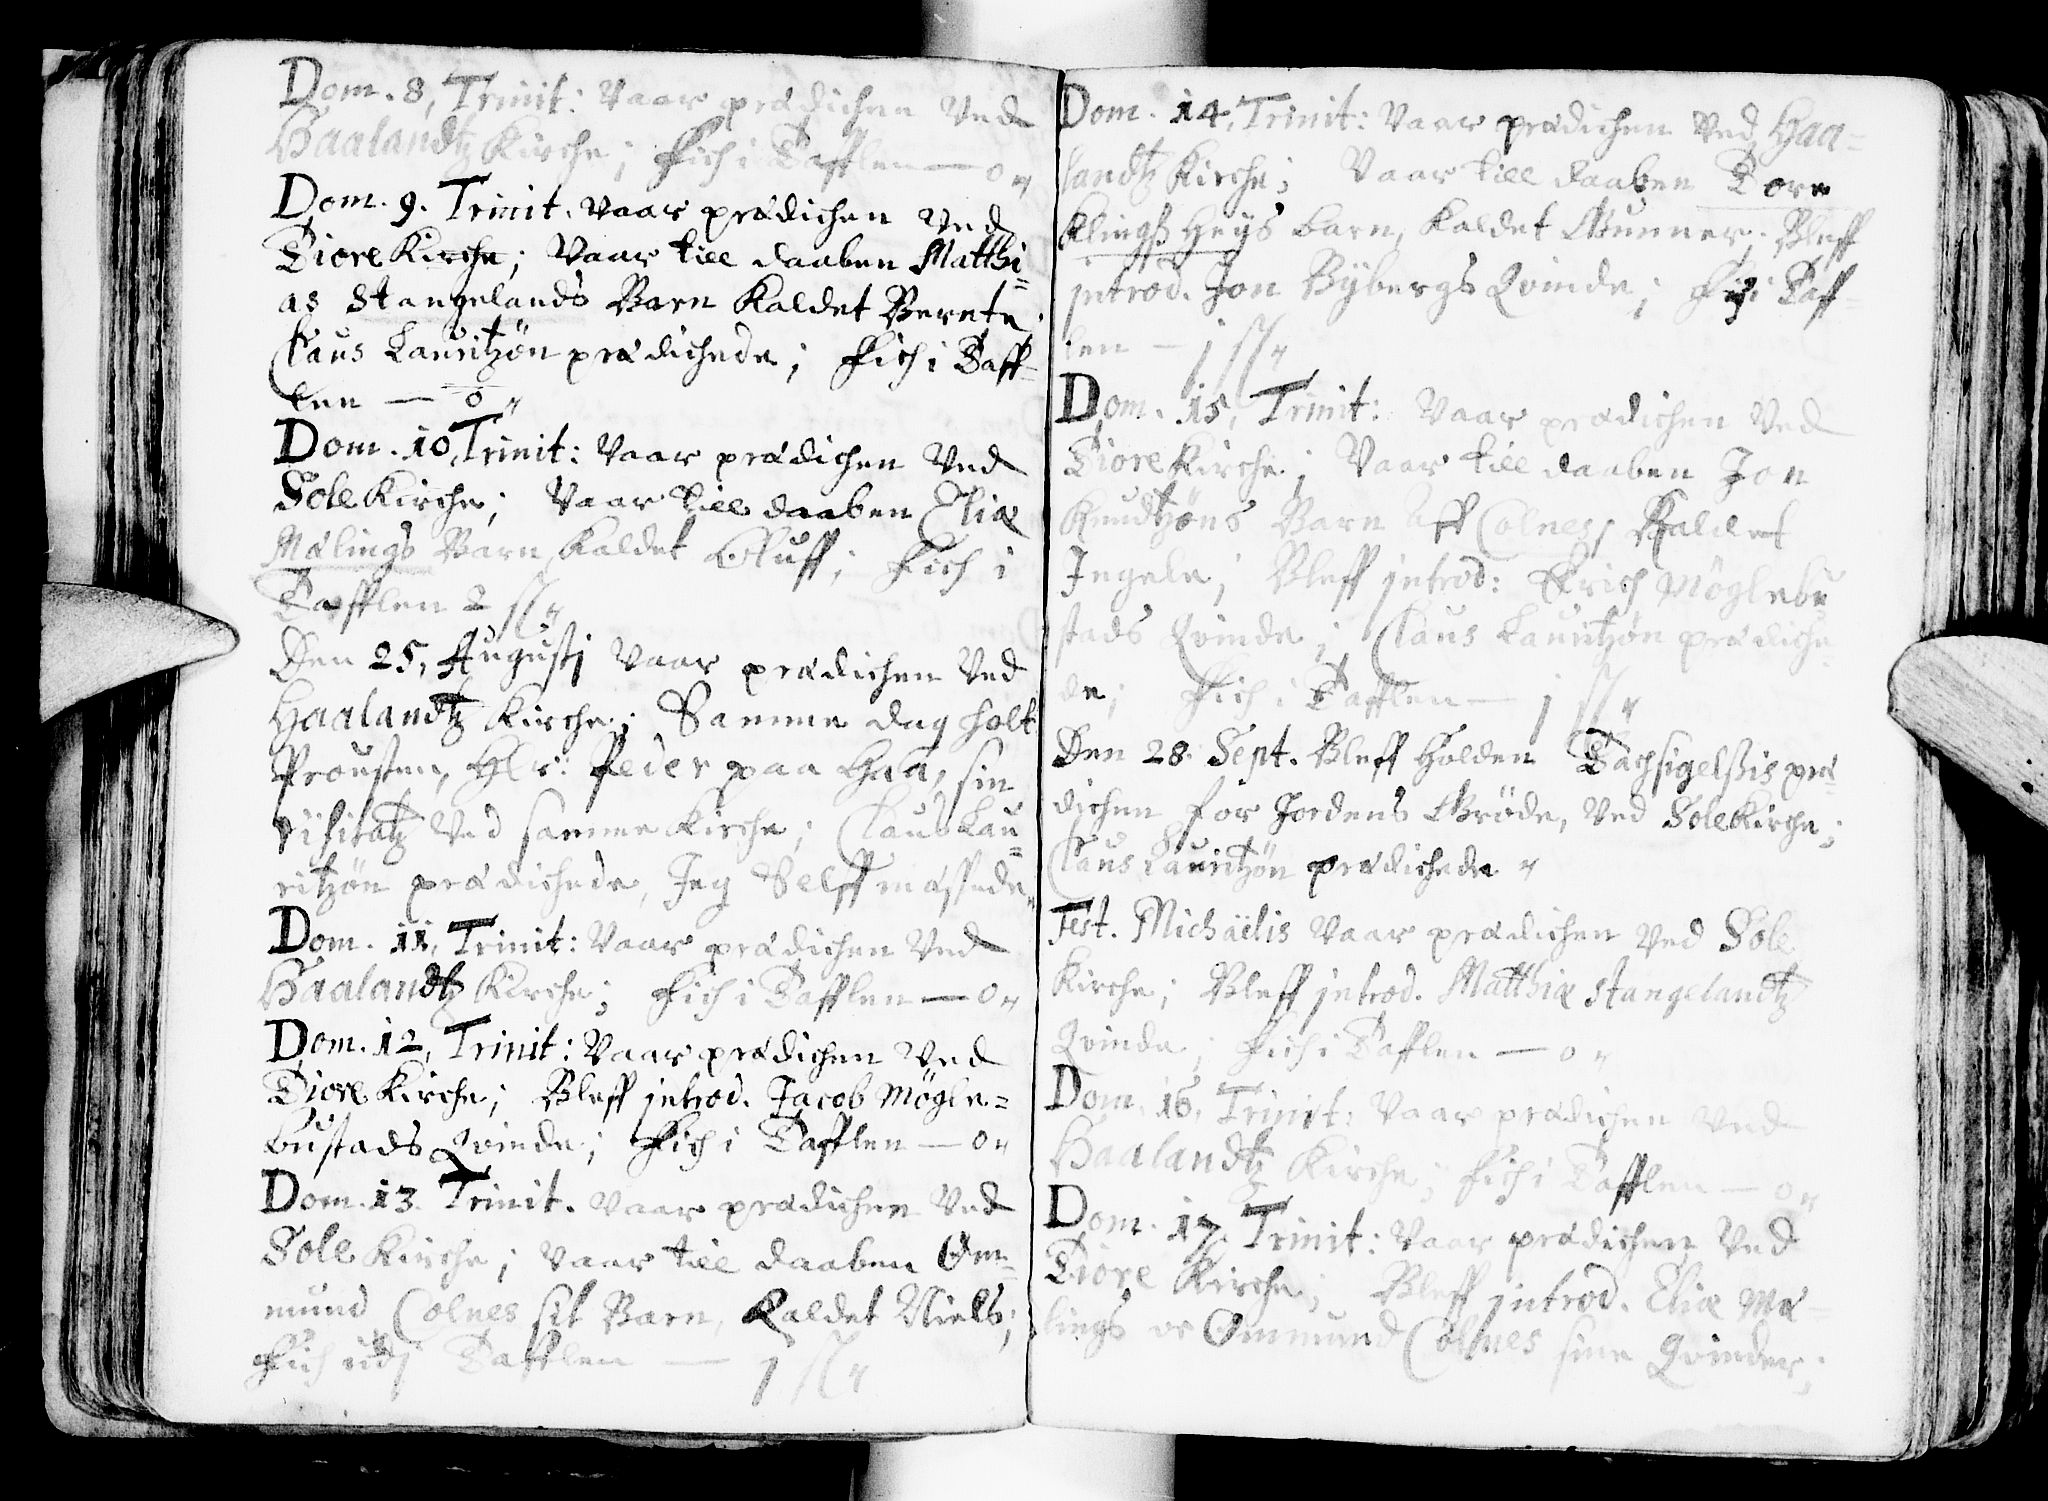 Dom. 8, Trinit: Vaar prædichen Ved
Haalandtz Kirche; Fich i Tafflen — 0 „
Dom. 9. Trinit. Vaar prædichen Ved
Tiore Kirche; Vaar till daaben Matthi=
as Stangelands Barn Kaldet Berete;
Claus Lauritzøn prædichede; Fich i Taff=
len — 0 „
Dom. 10, Trinit: Vaar prædichen Ved
Sole Kirche; Vaar till daaben Eliæ
Mælings Barn Kaldet Oluff; Fich i
Tafflen 2 ſſ „
Den 25, Augustj Vaar prædichen Ved
Haalandtz Kirche; Samme dag holt
Prousten, Hlr: Peder paa Haa, sin
visitatz Ved samme Kirche; Claus Lau=
ritzøn prædichede, Jeg Selff mæssede „
Dom. 11, Trinit: Vaar prædichen Ved
Haalandtz Kirche; Fich i Tafflen — 0 „
Dom. 12, Trinit: Vaar prædichen Ved
Tiore Kirche; Bleff jntrod. Jacob Mögle=
bustads Qvinde; Fich i Tafflen — 0 „
Dom. 13. Trinit. Vaar prædichen Ved
Sole Kirche; Vaar till daaben Om=
mund Colnes sit Barn, Kaldet Niels;
Fich udj Tafflen — j ſſ „
Dom. 14, Trinit: Vaar prædichen Ved Haa=
landtz Kirche; Vaar till daaben Tore
Klingß Heÿs barn, Kaldet Gunner; Bleff
jntrod. Jon Bÿbergs Qvinde; Fich i Taf=
len — j ſſ „
Dom. 15, Trinit: Vaar prædichen Ved
Tiore Kirche; Vaar till daaben Jon
Knudtzøns Barn aff Colnes, Kaldet
Jngele; Bleff jntrod: Erich Möglebu
stads Qvinde; Claus Lauritzøn prædiche=
de; Fich i Tafflen — j ſſ „
Den 28. Sept. Bleff Holden Tachsigelßis præ=
dichen for Jordens Gröde, Ved Sole Kirche;
Claus Lauritzøn prædichede „
Fest. Michaëlis Vaar prædichen Ved Sole
Kirche; Bleff jntrod. Matthiæ Stangelandtz
Qvinde; Fich i Tafflen — 0 „
Dom. 16, Trinit: Vaar prædichen Ved
Haalandtz Kirche; Fich i Tafflen — 0 „
Dom. 17. Trinit: Vaar prædichen Ved
Tiore Kirche; Bleff jntrod. Eliæ Mæ=
lings oc Ommund Colnes sine Qvinder;